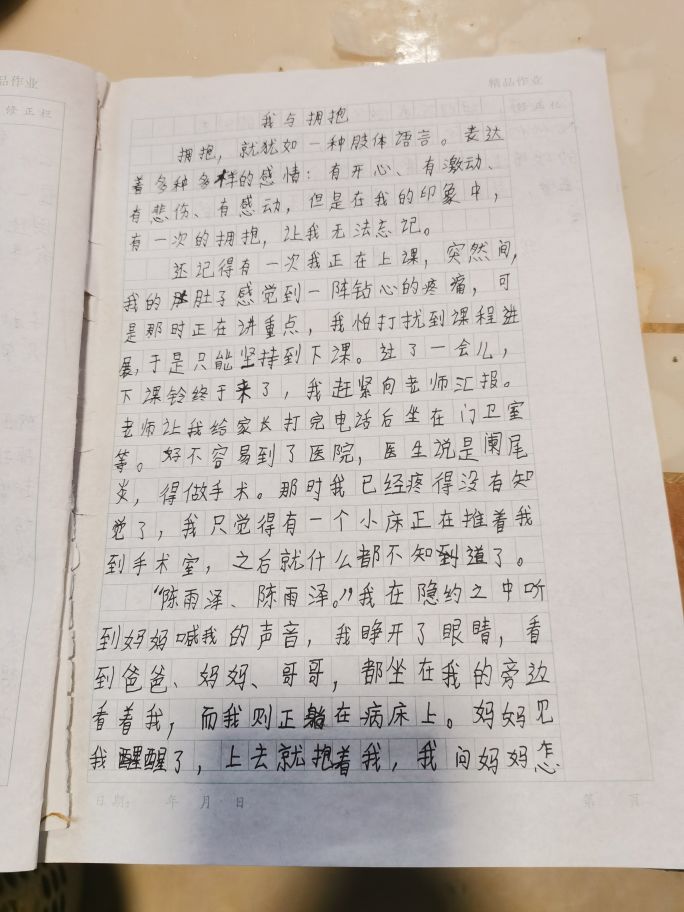 品作业
精品作业
修正栏
我与拥抱
拥抱，就犹如一种肢体语言。表达
着多种多样的感情：有开心、有激动、
有悲伤、有感动，但是在我的印象中，
有一次的拥抱，让我无法忘记。
还记得有一次我正在上课，突然间，
我的肚子感觉到一阵钻心的疼痛，可
是那时正在讲重点，我怕打扰到课程进
展，于是只能坚持到下课。过了一会儿，
下课铃终于来了，我赶紧向老师汇报。
老师让我给家长打完电话后坐在门卫室
等。好不容易到了医院，医生说是阑尾
炎，得做手术。那时我已经疼得没有知
觉了，我只觉得有一个小床正在推着我
到手术室，之后就什么都不知道了。
“陈雨泽、陈雨泽。”我在隐约之中听
到妈妈喊我的声音，我睁开了眼睛，看
到爸爸、妈妈、哥哥，都坐在我的旁边
看着我，而我则正躺在病床上。妈妈见
我醒了，上去就抱着我，我问妈妈怎
日期： 年 月 日 第 页